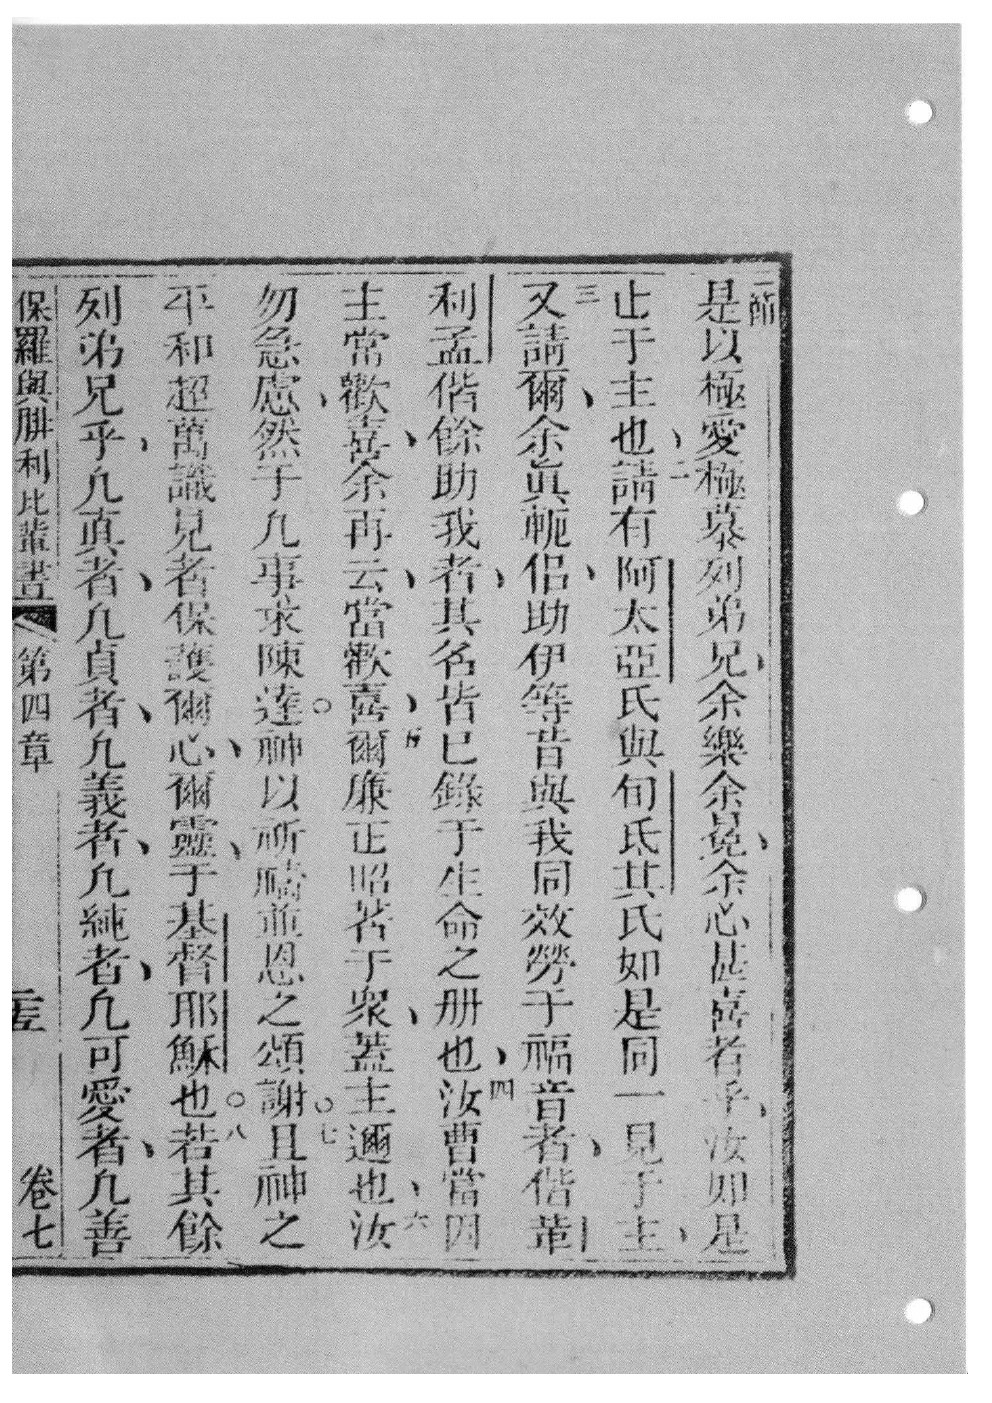 一節
是以極愛極慕列弟兄、余樂余冕、余心甚喜者乎、汝如是
止于主也、二請有阿太亞氏與旬氐其氏如是同一見于主、
三又請爾、余眞軛侶、助伊等昔與我同效勞于福音者、偕革
利孟偕餘助我者、其名皆已錄于生命之册也、四汝曹當因
主常歡喜、余再云、當歡喜、五爾廉正昭著于衆、蓋主邇也、六汝
勿急慮、然于凢事求陳達神○以祈禱並恩之頌謝○七且神之
平和超萬識見者保護爾心、爾靈、于基督耶穌也○八若其餘
列弟兄乎、凢真者、凢貞者、凢義者、凢純者、凢可愛者、凢善
保羅與腓利比輩書 第四章 卷七